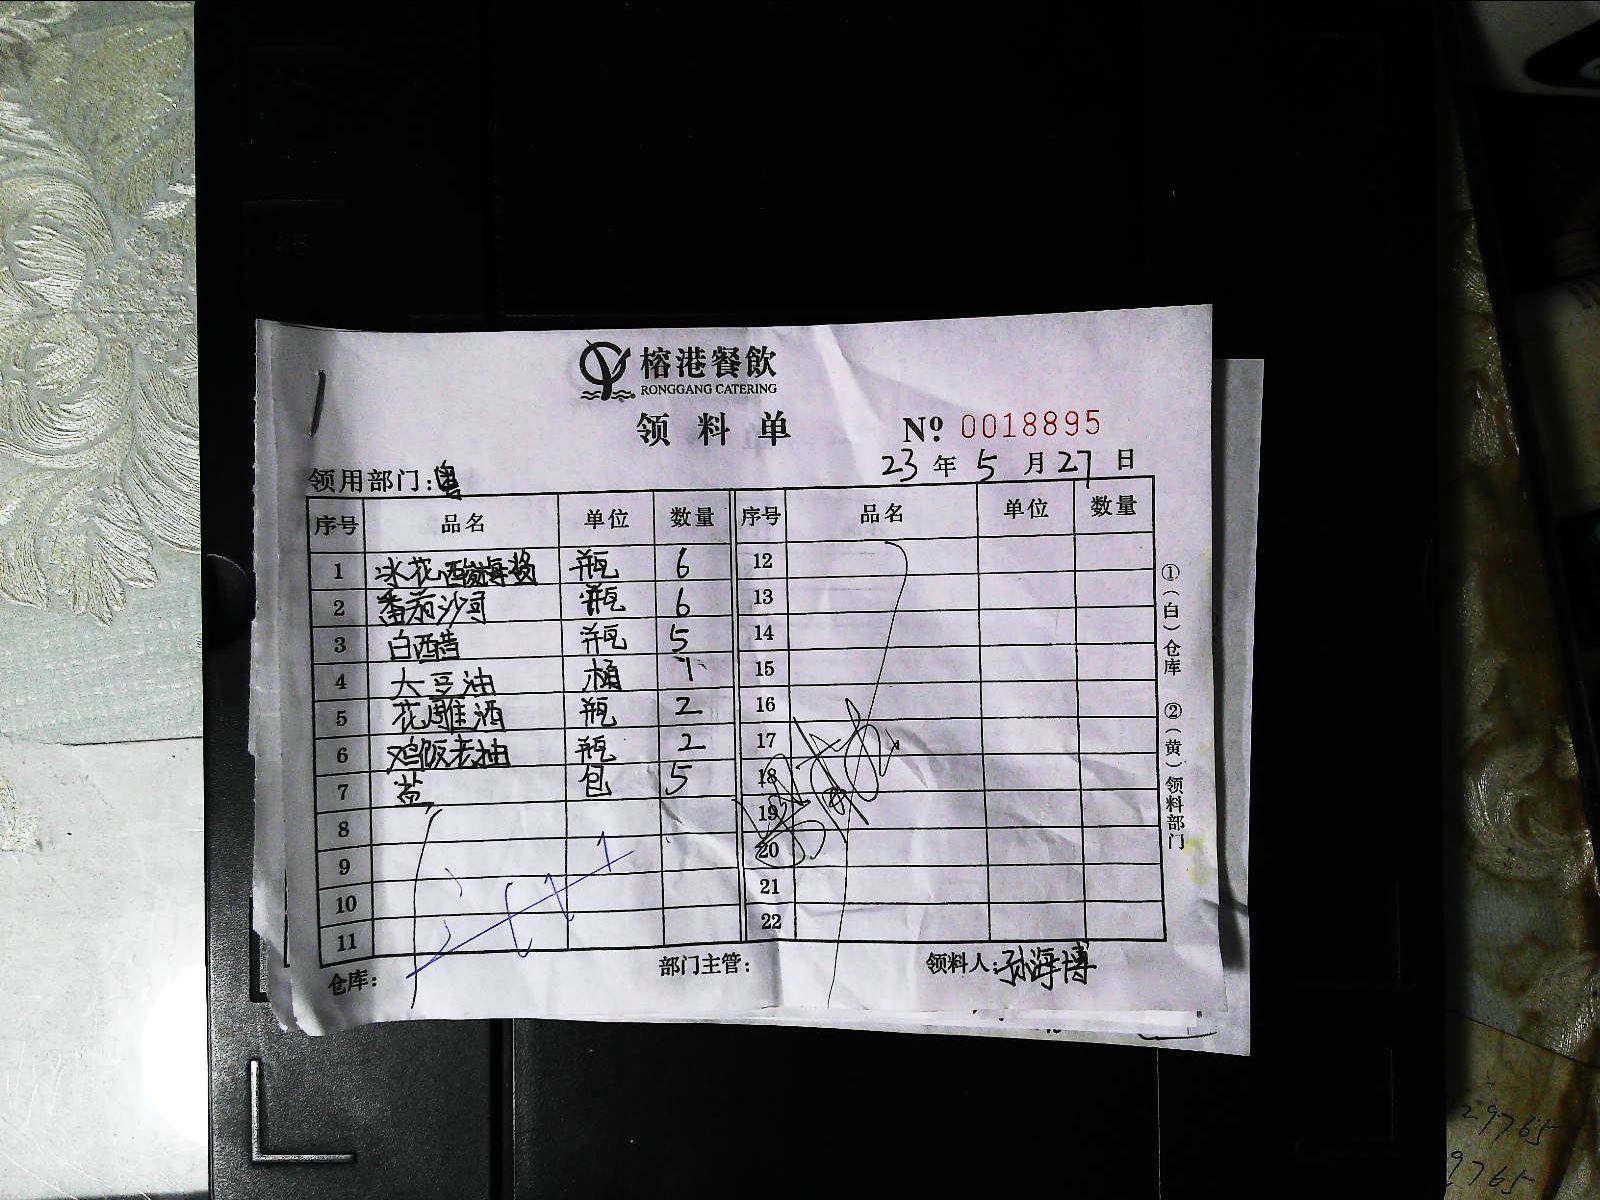 榕港餐飲
RONGGANG CATERING
领料单 Nº 0018895
领用部门:粤 23年5月27日
序号 品名 单位 数量 序号 品名 单位 数量
1 冰花酸梅酱 瓶 6 12
2 番茄沙司 瓶 6 13
3 白醋 瓶 5 14
4 大豆油 桶 1 15
5 花雕酒 瓶 2 16
6 鸡饭老抽 瓶 2 17
7 盐 包 5 18
8 19
9 20
10 21
11 22
仓库: 部门主管: 领料人:孙海博
①(白)仓库 ②(黄)领料部门
29765
9765